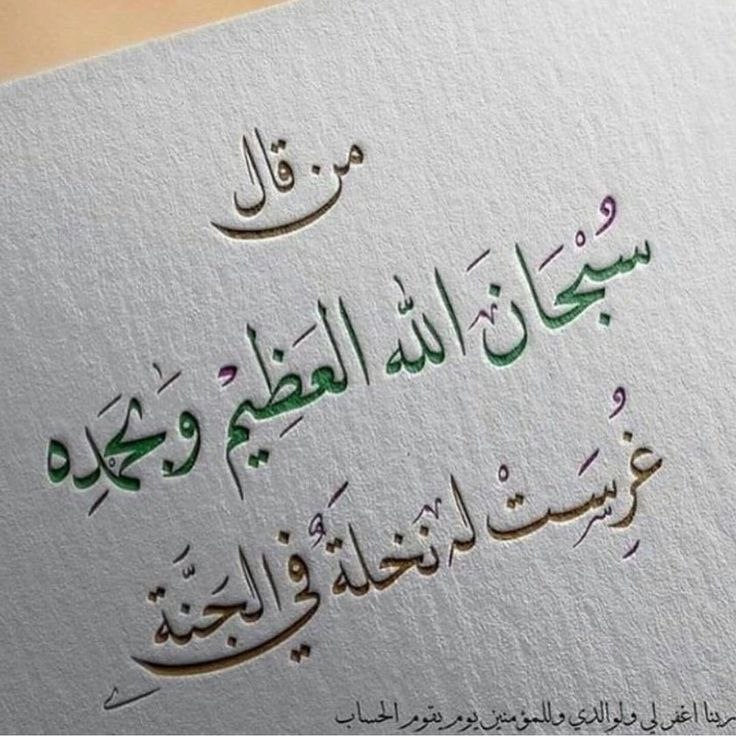 من قال
سُبْحَانَ الله العَظِيمْ وَبحَمَدِه
غُرِسَتْ لهُ نَخلَةٌ في الجَنَّة
ربنا اغفر لي ولوالدي وللمؤمنين يوم يقوم الحساب